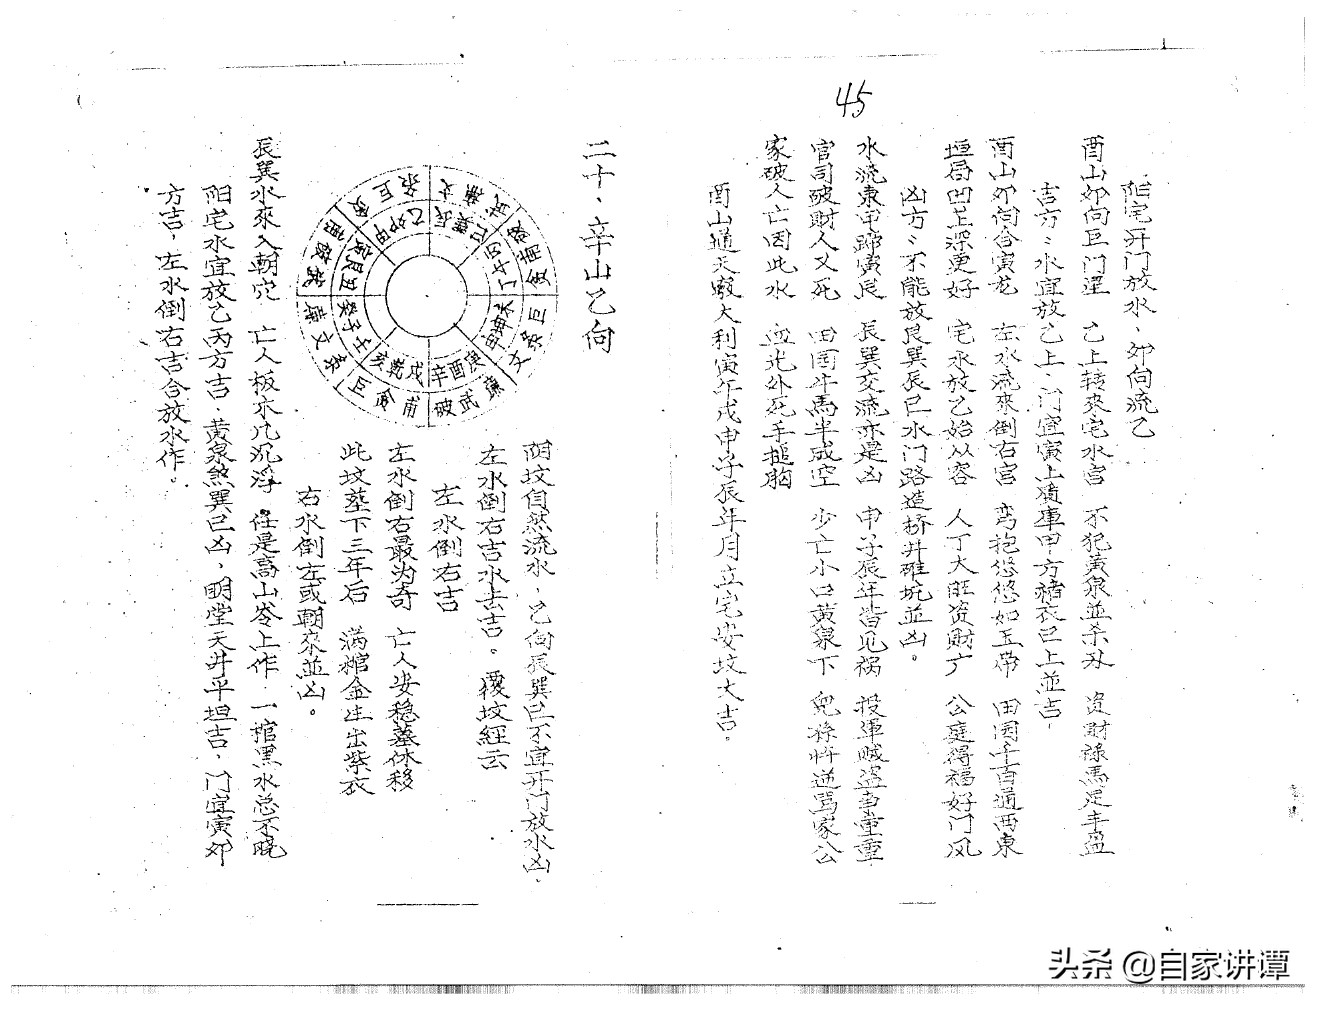 45
阳宅开门放水、卯向流乙
酉山卯向巨门星 乙上转来宅水宫 不犯黄泉並杀刑 资財禄馬足丰盈
吉方:水宜放乙上、门宜寅上 庫甲方 衣巳上並吉、
酉山卯向合寅龙 左水流來倒右宮 弯抱悠悠如玉带 田园千百通西東
垣局凹上深更好 宅水放乙始从容 人丁大旺资財广 公庭得福好门风
凶方:不能放艮巽辰巳水门路造桥井碓坑並凶。
水流東甲 寅艮 辰巽交流亦是凶 申子辰年皆见祸 投軍贼盗事重重
官司破財人又死 田园牛馬半成空 少亡小口黄泉下 忤逆骂家公
家破人亡因此水 血光外死手搥胸
酉山通天竅大利寅午戌申子辰年月立宅安坟大吉。
二十、辛山乙向
文 武 破 甫 贪 巨 文 廉 武 破 甫 贪 巨 文 廉 武 破 甫 巨
辰巽巳 丙午丁 未坤申 庚酉辛 戌乾亥 壬子癸 丑艮寅 甲卯乙
阴坟自然流水、乙向辰巽巳不宜开门放水凶、
左水倒右吉水去吉。覆坟經云
左水倒右吉
左水倒右最为奇 亡人安稳墓休移
此坟葬下三年后 满棺金生出紫衣
右水倒左或朝來並凶。
辰巽水來入朝穴 亡人板木几沉浮 任是高山岺上作 一棺黑水总不晓
阳宅水宜放乙丙方吉、黄泉煞巽巳凶，明堂天井平坦吉，门宜寅卯
方吉，左水倒右吉合放水作。
头条 @自家讲谭